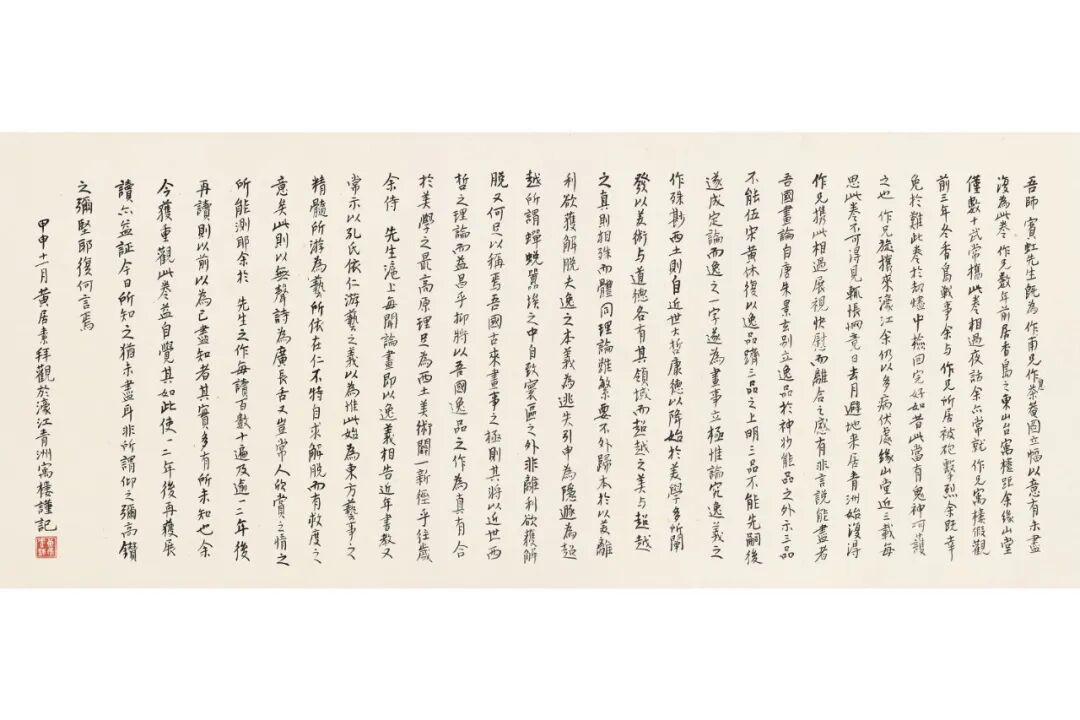 吾師 賓虹先生既為 作甫兄作黑茶蘼園立幅以意有未盡
復為此卷 作兄數年前居香島之東山台寓樓距余緣山堂
僅數十武常攜此卷相過夜話余亦常就 作兄寓樓假觀
前三年冬香島戰事余与 作兄所居被砲擊烈余既幸
免於難此卷於劫燼中檢回完好如昔此當有鬼神呵護
之也 作兄旋攜來濠江余仍以多病伏處緣山堂近三載每
思此卷不可得見輒悵惘竟日去月避地來居青洲始復得
作兄攜此相過展視快慰而離合之感有非言說能盡者
吾國畫論自唐朱景玄別立逸品於神妙能品之外示三品
不能伍宋黃休復以逸品躋三品之上明三品不能先嗣後
遂成定論而逸之一字遂為畫事立極惟論究逸義之
作殊尠西土則自近世大哲康德以降始於美學多所闡
發以美術与道德各有其領域而超越之美与超越
之真則相殊而體同理論雖繁要不外歸本於以美離
利欲獲解脫夫逸之本義為逃失引申為隱遯為超
越所謂蟬蛻囂埃之中自致寰區之外非離利欲獲解
脫又何足以稱焉吾國古來畫事之極則其將以近世西
哲之理論而益昌乎抑將以吾國逸品之作為真有合
於美學之最高原理且為西土美術闢一新徑乎往歲
余侍 先生滬上每聞論畫即以逸義相告近年書教又
常示以孔氏依仁游藝之義以為惟此始為東方藝事之
精髓所游為藝所依在仁不特自求解脫而有救度之
意矣此則以無聲詩為廣長舌又豈常人欣賞之情之
所能測耶余於 先生之作每讀百數十遍及逾一二年後
再讀則以前以為已盡知者其實多有所未知也余
今獲重觀此卷益自覺其如此使一二年後再獲展
讀亦益証今日所知之猶未盡耳非所謂仰之彌高鑽
之彌堅耶復何言焉
甲申十一月黃居素拜觀於濠江青洲寓樓謹記